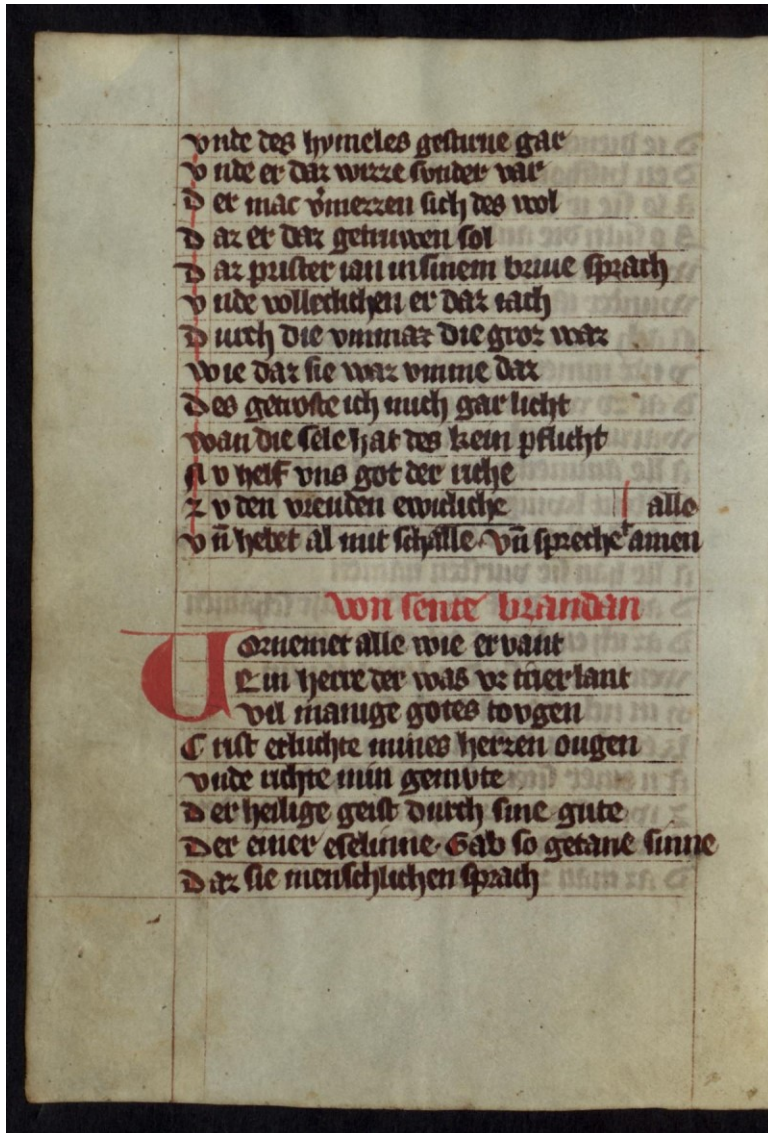 vnde des hymeles gestirne gar
vnde er daz wizze sunder var
Der mac v'mezzen sich des wol
Daz er daz getruwen sol
Daz prister ian in sinem brive sprach
Vnde vollecklichen er daz iach
Durch die vmmaz die groz waz
wie daz sie waz vmme daz
Des getroste ich mich gar licht
wan die sele hat des kein pflicht
Nv helf vns got der riche
Zv den vreuden ewicliche alle
vn̄ hebet al mit schalle · Vn̄ spreche't amen
Von sente brandan
VOrnemet alle wie er vant
Ein herre der was vz irier lant
vil manige gotes tovgen
Crist erluchte mines herzen ougen
vnde richte min gemvte
Der heilige geist durch sine gute
Der einer eselinne · Gab so getane sinne
Daz sie menschlichen sprach